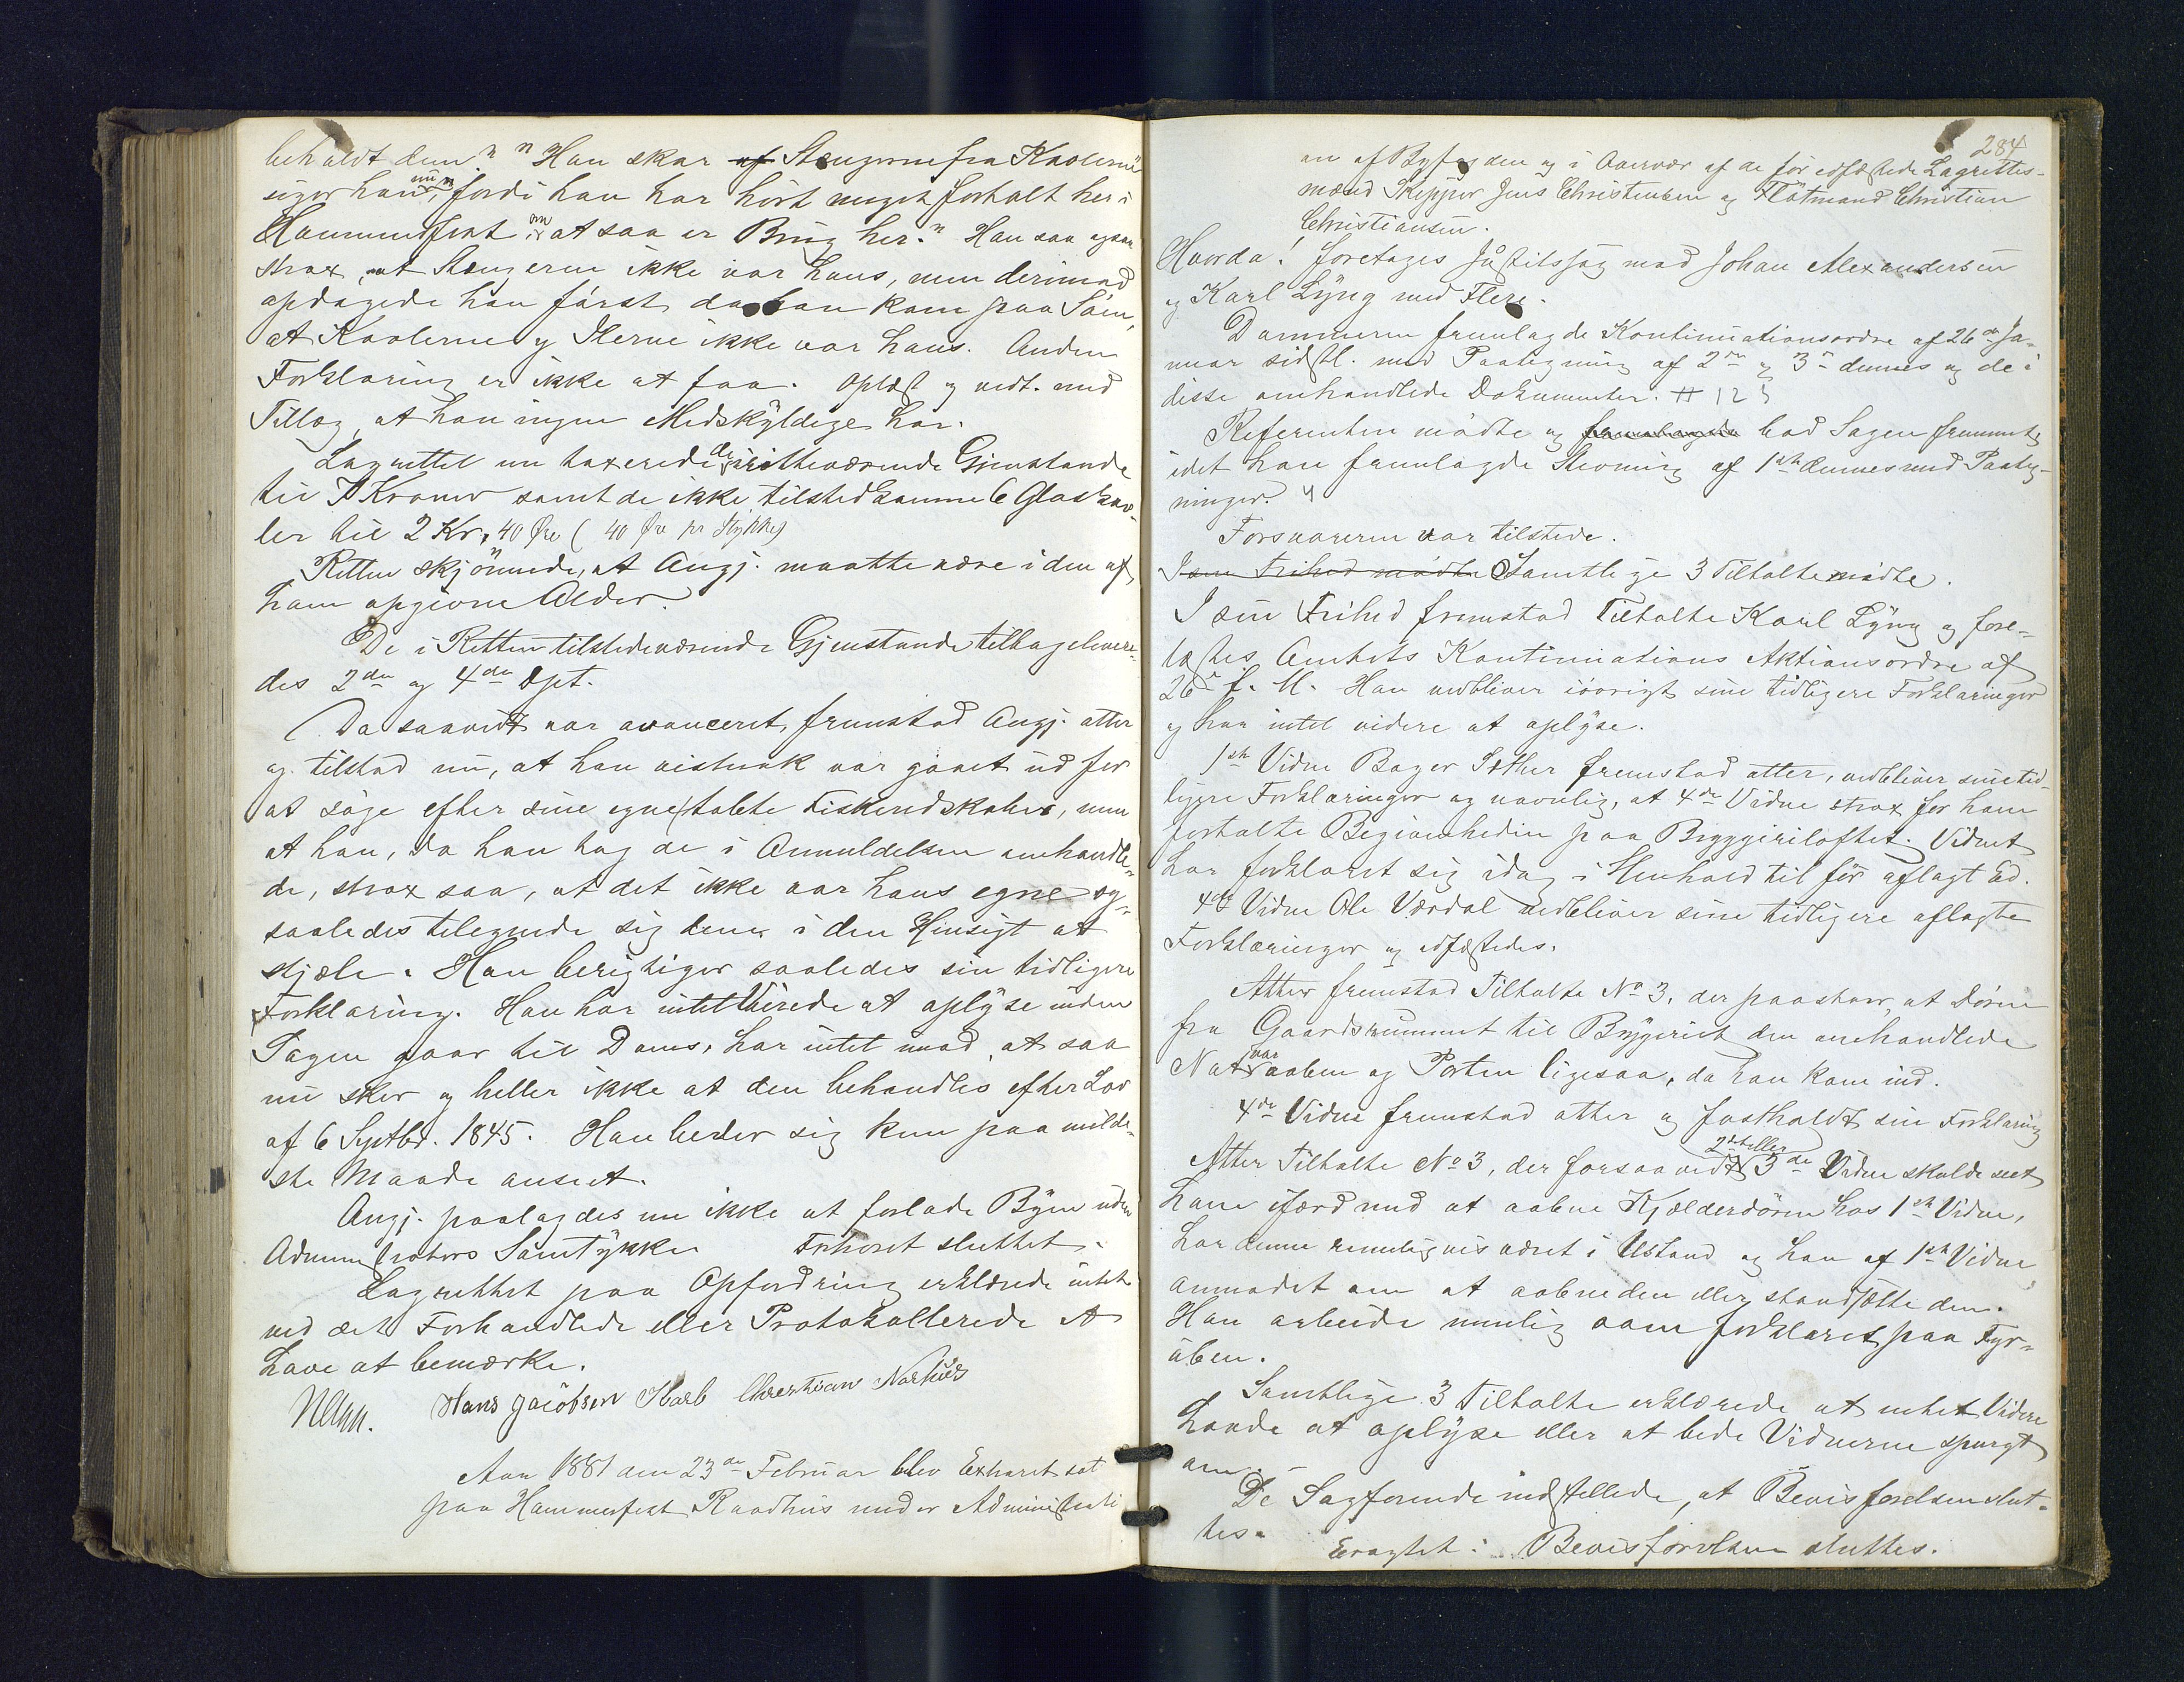 beholdt dem" "Han skar af Stengerne fra Kavlerne
siger han nu, fordi han har hört noget fortalt her i
Hammerfest om at saa er Brug her." Han saa ogsaa
strax, at Stengerne ikke var hans, men derimod
opdagede han först da han kom paa Söen,
at Kavlerne og Ilerne ikke var hans. Anden
Forklaring er ikke at faa. Oplæst og vedt. med
Tillæg, at han ingen Medskyldige har.
Lagrettet nu taxerede de tilstedeværende Gjenstande
til Kroner samt de ikke tilstedkomne 6 Glaskav-
ler til 2 Kr. 40 Øre (40 Øre pr Stykke)
Retten skjönnede, at Angj. maatte være i den af
ham opgivne Alder.
De i Retten tilstedeværende Gjenstande tilbagelevere-
des 2den og 4de Dpt.
Da saavidt var avanceret, fremstod Angj. atter
og tilstod nu, at han vistnok var gaaet ud for
at söge efter sine egne tabte Fiskeredskaber, men
at han, da han tog de i Anmeldelsen omhandle-
de, strax saa, at det ikke var hans egne og
saaledes tilegnede sig dem i den Hensigt at
stjæle. Han berigtiger saaledes sin tidligere
Forklaring. Han har intet Videre at oplyse inden
Sagen gaar til Doms, har intet imod, at saa
nu sker og heller ikke at den behandles efter Lov
af 6 Septbr. 1845. Han beder sig kun paa milde-
ste Maade anseet.
Angj. paalagdes nu ikke at forlade Byen uden
Administrators Samtykke. Forhöret sluttet.
Lagrettet paa Opfordring erklærede intet
ved det Forhandlede eller Protokollerede at
have at bemærke.
Hans Jacobsen Karb Christian Norhus
Aar 1881 den 23de Februar blev Extraret sat
paa Hammerfest Raadhus under Administrati
284
on af Byfogden og i Overvær af de för edfæstede Lagrettes-
mænd Skipper Jens Christensen og Flötmand Christian
Christiansen.
Hvorda! foretages Justitssag mod Johan Alexandersen
og Karl Lyng med Flere.
Dommeren fremlagde Kontinuationsordre af 26de Ja-
nuar sidstl. med Paategning af 2den og 3die dennes og de i
disse omhandlede Dokumenter. # 12
Referenten mödte og fremlagde bad Sagen fremmet
idet han fremlagde Stevning af 1ste dennes med Paateg-
ninger.
Forsvareren var tilstede.
I sin Frihed mödte Samtlige 3 Tiltalte mödte.
I sin Frihed fremstod Tiltalte Karl Lyng og fore-
læstes Amtets Kontinuations Aktionsordre af
26de f. M. Han vedbliver iövrigt sine tidligere Forklaringer
og har intet videre at oplyse.
1ste Vidne Bager Ister fremstod atter, vedbliver sine tid-
ligere Forklaringer og navnlig, at 4de Vidne strax for ham
fortalte Begivenheden paa Bryggeriloftet. Vidnet
har forklaret sig idag i Henhold til för aflagt Ed.
4de Vidne Ole Værdal vedbliver sine tidligere aflagte
Forklaringer og edfæstedes.
Atter fremstod Tiltalte No 3, der paastaar, at Dören
fra Gaardsrummet til Bryggeriet den omhandlede
Nat var aaben og Porten ligesaa, da han kom ind.
4de Vidne fremstod atter og fastholdt sin Forklaring
Atter Tiltalte No 3, der forsaavidt 2det eller 3de Vidne skulde seet
ham ifærd med at aabne Kjælderdören hos 1ste Vidne,
har denne rimeligvis været i Ustand og han af 1ste Vidne
anmodet om at aabne den eller standsætte dem.
Han arbeide nemlig som forklaret paa Fyr-
aben.
Samtlige 3 Tiltalte erklærede at intet Videre
havde at oplyse eller at bede Vidnerne spurgt
om.
De Sagförende indstillede, at Bevisförelsen slut-
tes.
Eragtet: Bevisförelsen sluttes.